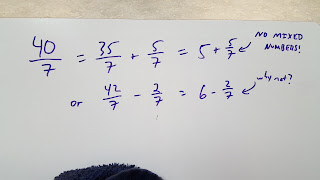 40/7 = 35/7 + 5/7 = 5 + 5/7 NO MIXED NUMBERS!
or 42/7 - 2/7 = 6 - 2/7 why not?